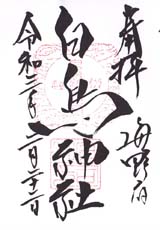 奉拝
海野宿
白鳥神社
令和三年二月二十二日